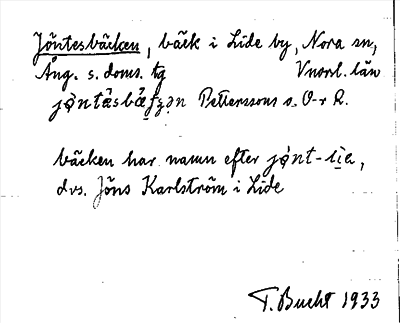 Jöntesbäcken, bäck i Lide by, Nora sn,
Ång. s. doms. tg Vnorrl. län
Petterssons s. O-r R.
bäcken har namn efter
dvs. Jöns Karlström i Lide
T. Bucht 1933